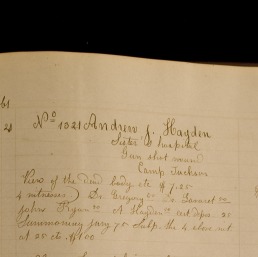 61
24
No 1021 Andrew J. Hayden
Sister's Hospital
Gun shot wound
Camp Jackson
View of the dead body etc $ 7.25
4 witnesses Dr. Gregory Dr.
John A. Hayden cert depo. 25
Summoning jury 75 Subp. the 4 above wit
at 25 cts. $1.00